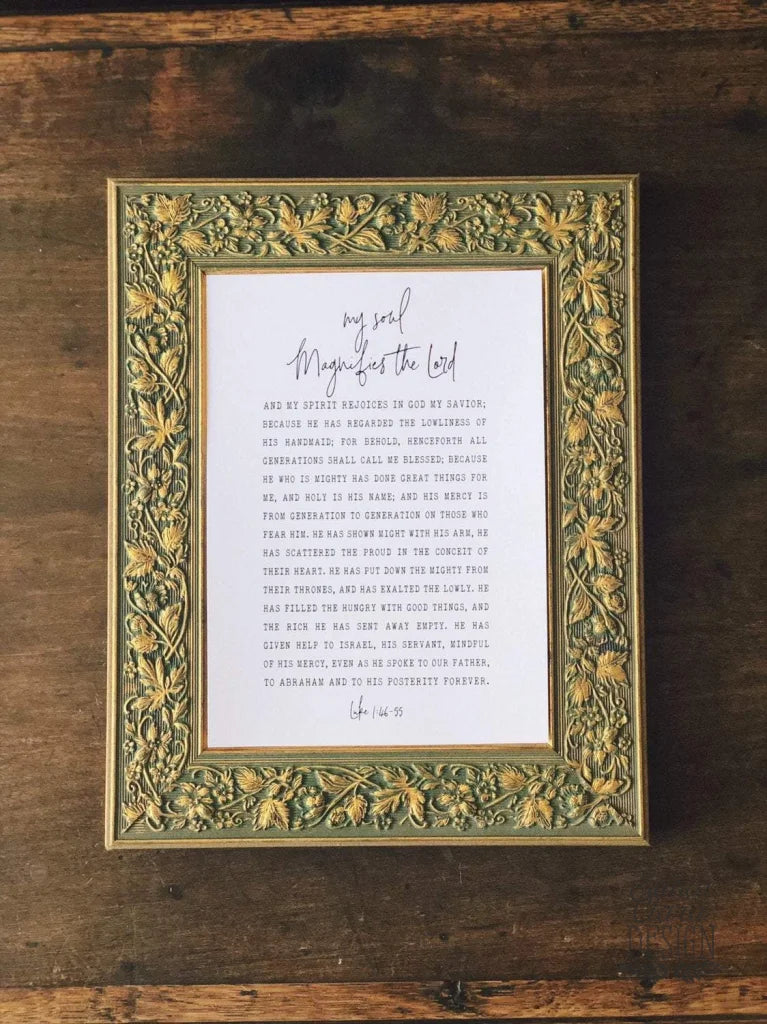 my soul
Magnifies the Lord
AND MY SPIRIT REJOICES IN GOD MY SAVIOR;
BECAUSE HE HAS REGARDED THE LOWLINESS OF
HIS HANDMAID; FOR BEHOLD, HENCEFORTH ALL
GENERATIONS SHALL CALL ME BLESSED; BECAUSE
HE WHO IS MIGHTY HAS DONE GREAT THINGS FOR
ME, AND HOLY IS HIS NAME; AND HIS MERCY IS
FROM GENERATION TO GENERATION ON THOSE WHO
FEAR HIM. HE HAS SHOWN MIGHT WITH HIS ARM, HE
HAS SCATTERED THE PROUD IN THE CONCEIT OF
THEIR HEART. HE HAS PUT DOWN THE MIGHTY FROM
THEIR THRONES, AND HAS EXALTED THE LOWLY. HE
HAS FILLED THE HUNGRY WITH GOOD THINGS, AND
THE RICH HE HAS SENT AWAY EMPTY. HE HAS
GIVEN HELP TO ISRAEL, HIS SERVANT, MINDFUL
OF HIS MERCY, EVEN AS HE SPOKE TO OUR FATHER,
TO ABRAHAM AND TO HIS POSTERITY FOREVER.
Luke 1:46-55
DESIGN